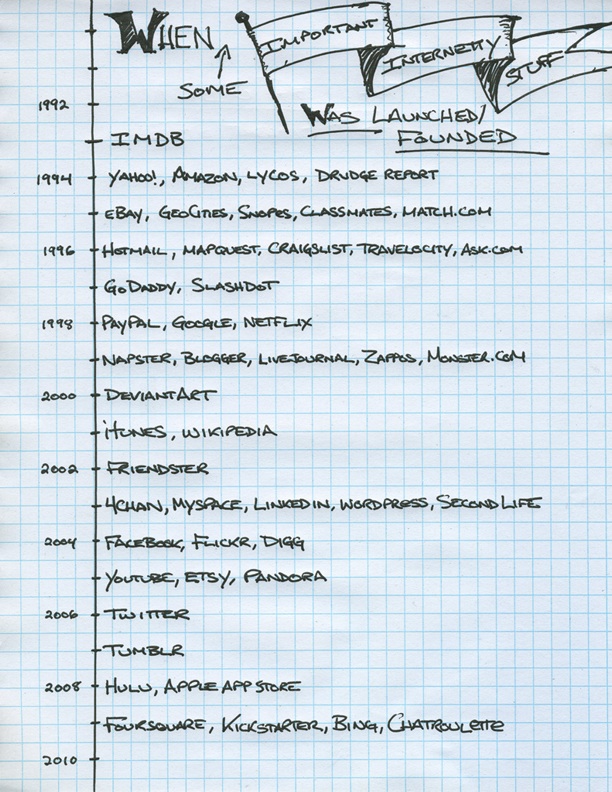 WHEN
SOME
IMPORTANT
INTERNETTY
STUFF
WAS LAUNCHED/
FOUNDED
1992
IMDB
1994 YAHOO!, AMAZON, LYCOS, DRUDGE REPORT
EBAY, GEOCITIES, SNOPES, CLASSMATES, MATCH.COM
1996 HOTMAIL, MAPQUEST, CRAIGSLIST, TRAVELOCITY, ASK.COM
GODADDY, SLASHDOT
1998 PAYPAL, GOOGLE, NETFLIX
NAPSTER, BLOGGER, LIVEJOURNAL, ZAPPOS, MONSTER.COM
2000 DEVIANTART
iTUNES, WIKIPEDIA
2002 FRIENDSTER
4CHAN, MYSPACE, LINKEDIN, WORDPRESS, SECOND LIFE
2004 FACEBOOK, FLICKR, DIGG
YOUTUBE, ETSY, PANDORA
2006 TWITTER
TUMBLR
2008 HULU, APPLE APP STORE
FOURSQUARE, KICKSTARTER, BING, CHATROULETTE
2010